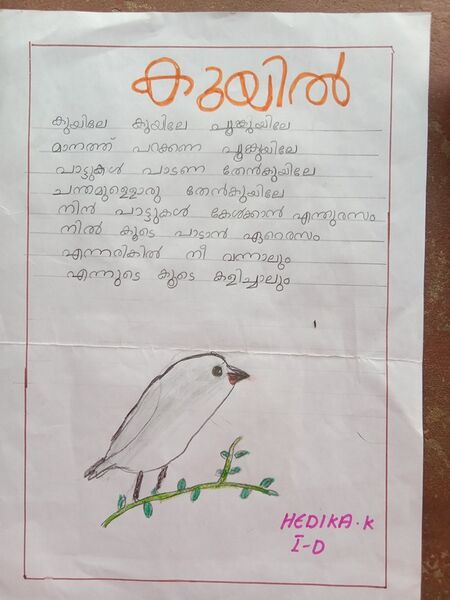 കുയിൽ
കുയിലേ കുയിലേ പൂങ്കുയിലേ
മാനത്ത് പറക്കണ പൂങ്കുയിലേ
പാട്ടുകൾ പാടണ തേൻകുയിലേ
ചന്തമുള്ളൊരു തേൻകുയിലേ
നിൻ പാട്ടുകൾ കേൾക്കാൻ എന്തുരസം
നിൽ കൂടെ പാടാൻ ഏറെരസം
എന്നരികിൽ നീ വന്നാലും
എന്നുടെ കൂടെ കളിച്ചാലും
HEDIKA.K
I-D